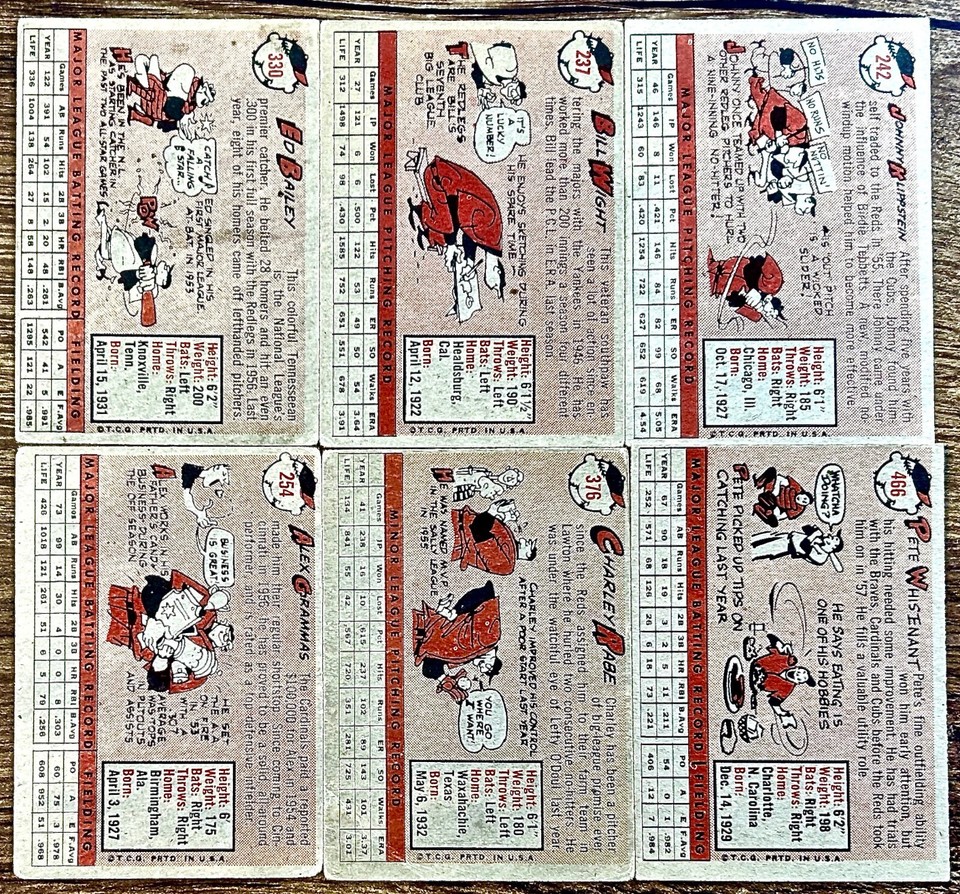 330
ED BAILEY
This colorful Tennessean
is the National League's
premier catcher. He belted 28 homers and hit an even
.300 in his first full season with the Redlegs in 1956. Last
year, eight of his homers came off lefthanded pitchers.
HE'S BEEN IN THE N.L.
AS STARTING CATCHER IN
THE PAST TWO ALL-STAR GAMES
CATCH A
FALLING
STAR...
POW
ED SINGLED IN HIS
FIRST MAJOR LEAGUE
AT BAT IN 1953
Height: 6' 2"
Weight: 200
Bats: Left
Throws: Right
Home:
Knoxville,
Tenn.
Born:
April 15, 1931
MAJOR LEAGUE BATTING RECORD FIELDING
Games AB Runs Hits 2B 3B HR RBI B.Avg PO A E F.Avg
YEAR 122 391 54 102 15 2 20 48 .261 542 41 5 .991
LIFE 336 1004 138 264 27 8 58 148 .263 1295 121 22 .985
©T.C.G. PRTD. IN U.S.A.
237
BILL WIGHT
This veteran southpaw has
seen a lot of action since en-
tering the majors with the Yankees in 1946. He has
worked more than 200 innings a season four different
times. Bill lead the P.C.L. in E.R.A. last season.
THE REDLEGS
ARE BILL'S
SEVENTH
BIG LEAGUE
CLUB
IT'S
A
LUCKY
NUMBER!
HE ENJOYS SKETCHING DURING
HIS SPARE TIME
Height: 6'1½"
Weight: 190
Bats: Left
Throws: Left
Home:
Healdsburg,
Cal.
Born:
April 12, 1922
MAJOR LEAGUE PITCHING RECORD
Games IP Won Lost Pct Hits Runs ER SO Walks ERA
YEAR 27 121 6 6 .500 122 53 49 50 54 3.64
LIFE 312 1498 74 98 .430 1585 752 651 551 678 3.91
©T.C.G. PRTD. IN U.S.A.
242
JOHNNY KLIPPSTEIN
After spending five years with
the Cubs, Johnny found him-
self traded to the Reds in '55. There Johnny came under
the influence of Birdie Tebbetts. A new, modified no-
windup motion helped him to become more effective.
JOHNNY ONCE TEAMED UP WITH TWO
OTHER REDLEG PITCHERS TO HURL
A NINE-INNING NO-HITTER!
NO HITS
NO RUNS
NO NUTTIN'
HIS "OUT" PITCH
IS A WICKED
SLIDER!
Height: 6'1"
Weight: 185
Bats: Right
Throws: Right
Home:
Chicago, Ill.
Born:
Oct. 17, 1927
MAJOR LEAGUE PITCHING RECORD
Games IP Won Lost Pct Hits Runs ER SO Walks ERA
YEAR 46 146 8 11 .421 146 84 82 99 68 5.05
LIFE 315 1243 60 83 .420 1254 722 627 652 619 4.54
©T.C.G. PRTD. IN U.S.A.
254
ALEX GRAMMAS
The Cardinals paid a reported
$100,000 for Alex in 1954 and
made him their regular shortstop. Since coming to Cin-
cinnati in 1956, he has proved to be a solid all-around
performer and is rated as a top defensive infielder.
ALEX WORKS IN HIS
FATHER'S CANDY
BUSINESS DURING
THE OFF SEASON
BUSINESS
IS GREAT!
HE SET
THE A.A.
ON FIRE
IN '53
WITH A
.307
AVERAGE
AND
WAS TOPS
IN PUTOUTS
AND ASSISTS
Height: 6'
Weight: 175
Bats: Right
Throws: Right
Home:
Birmingham,
Ala.
Born:
April 3, 1927
MAJOR LEAGUE BATTING RECORD FIELDING
Games AB Runs Hits 2B 3B HR RBI B.Avg PO A E F.Avg
YEAR 73 99 14 30 4 0 0 8 .303 60 75 3 .978
LIFE 420 1018 121 251 51 6 5 79 .256 608 952 51 .968
©T.C.G. PRTD. IN U.S.A.
376
CHARLEY RABE
Charley has been a pitcher
of big-league promise ever
since the Reds assigned him to their farm team in
Lawton where he hurled two consecutive no-hitters. He
was under the watchful eye of Lefty O'Doul last year.
HE WAS NAMED M.V.P.
IN THE SALLY LEAGUE
IN 1955
CHARLEY IMPROVED HIS CONTROL
AFTER A POOR START LAST YEAR
YOU GO
WHERE
I WANT!
Height: 6'1"
Weight: 180
Bats: Left
Throws: Left
Home:
Waxahachie,
Texas
Born:
May 6, 1932
MINOR LEAGUE PITCHING RECORD
Games IP Won Lost Pct Hits Runs ER SO Walks ERA
YEAR 41 235 16 10 .615 237 102 88 143 101 3.37
LIFE 134 841 55 42 .567 720 351 281 725 431
©T.C.G. PRTD. IN U.S.A.
466
PETE WHISENANT
Pete's fine outfielding ability
won him early attention, but
his hitting needed some improvement. He has had trials
with the Braves, Cardinals and Cubs before the Reds took
him on in '57. He fills a valuable utility role.
WHATCHA
DOING?
PETE PICKED UP TIPS ON
CATCHING LAST YEAR
HE SAYS EATING IS
ONE OF HIS HOBBIES
Height: 6'2"
Weight: 198
Bats: Right
Throws: Right
Home:
Charlotte,
N. Carolina
Born:
Dec. 14, 1929
MAJOR LEAGUE BATTING RECORD FIELDING
Games AB Runs Hits 2B 3B HR RBI B.Avg PO A E F.Avg
YEAR 67 90 18 19 3 2 5 11 .211 54 0 1 .982
LIFE 252 571 68 126 26 6 18 73 .221 406 12 7 .984
©T.C.G. PRTD. IN U.S.A.